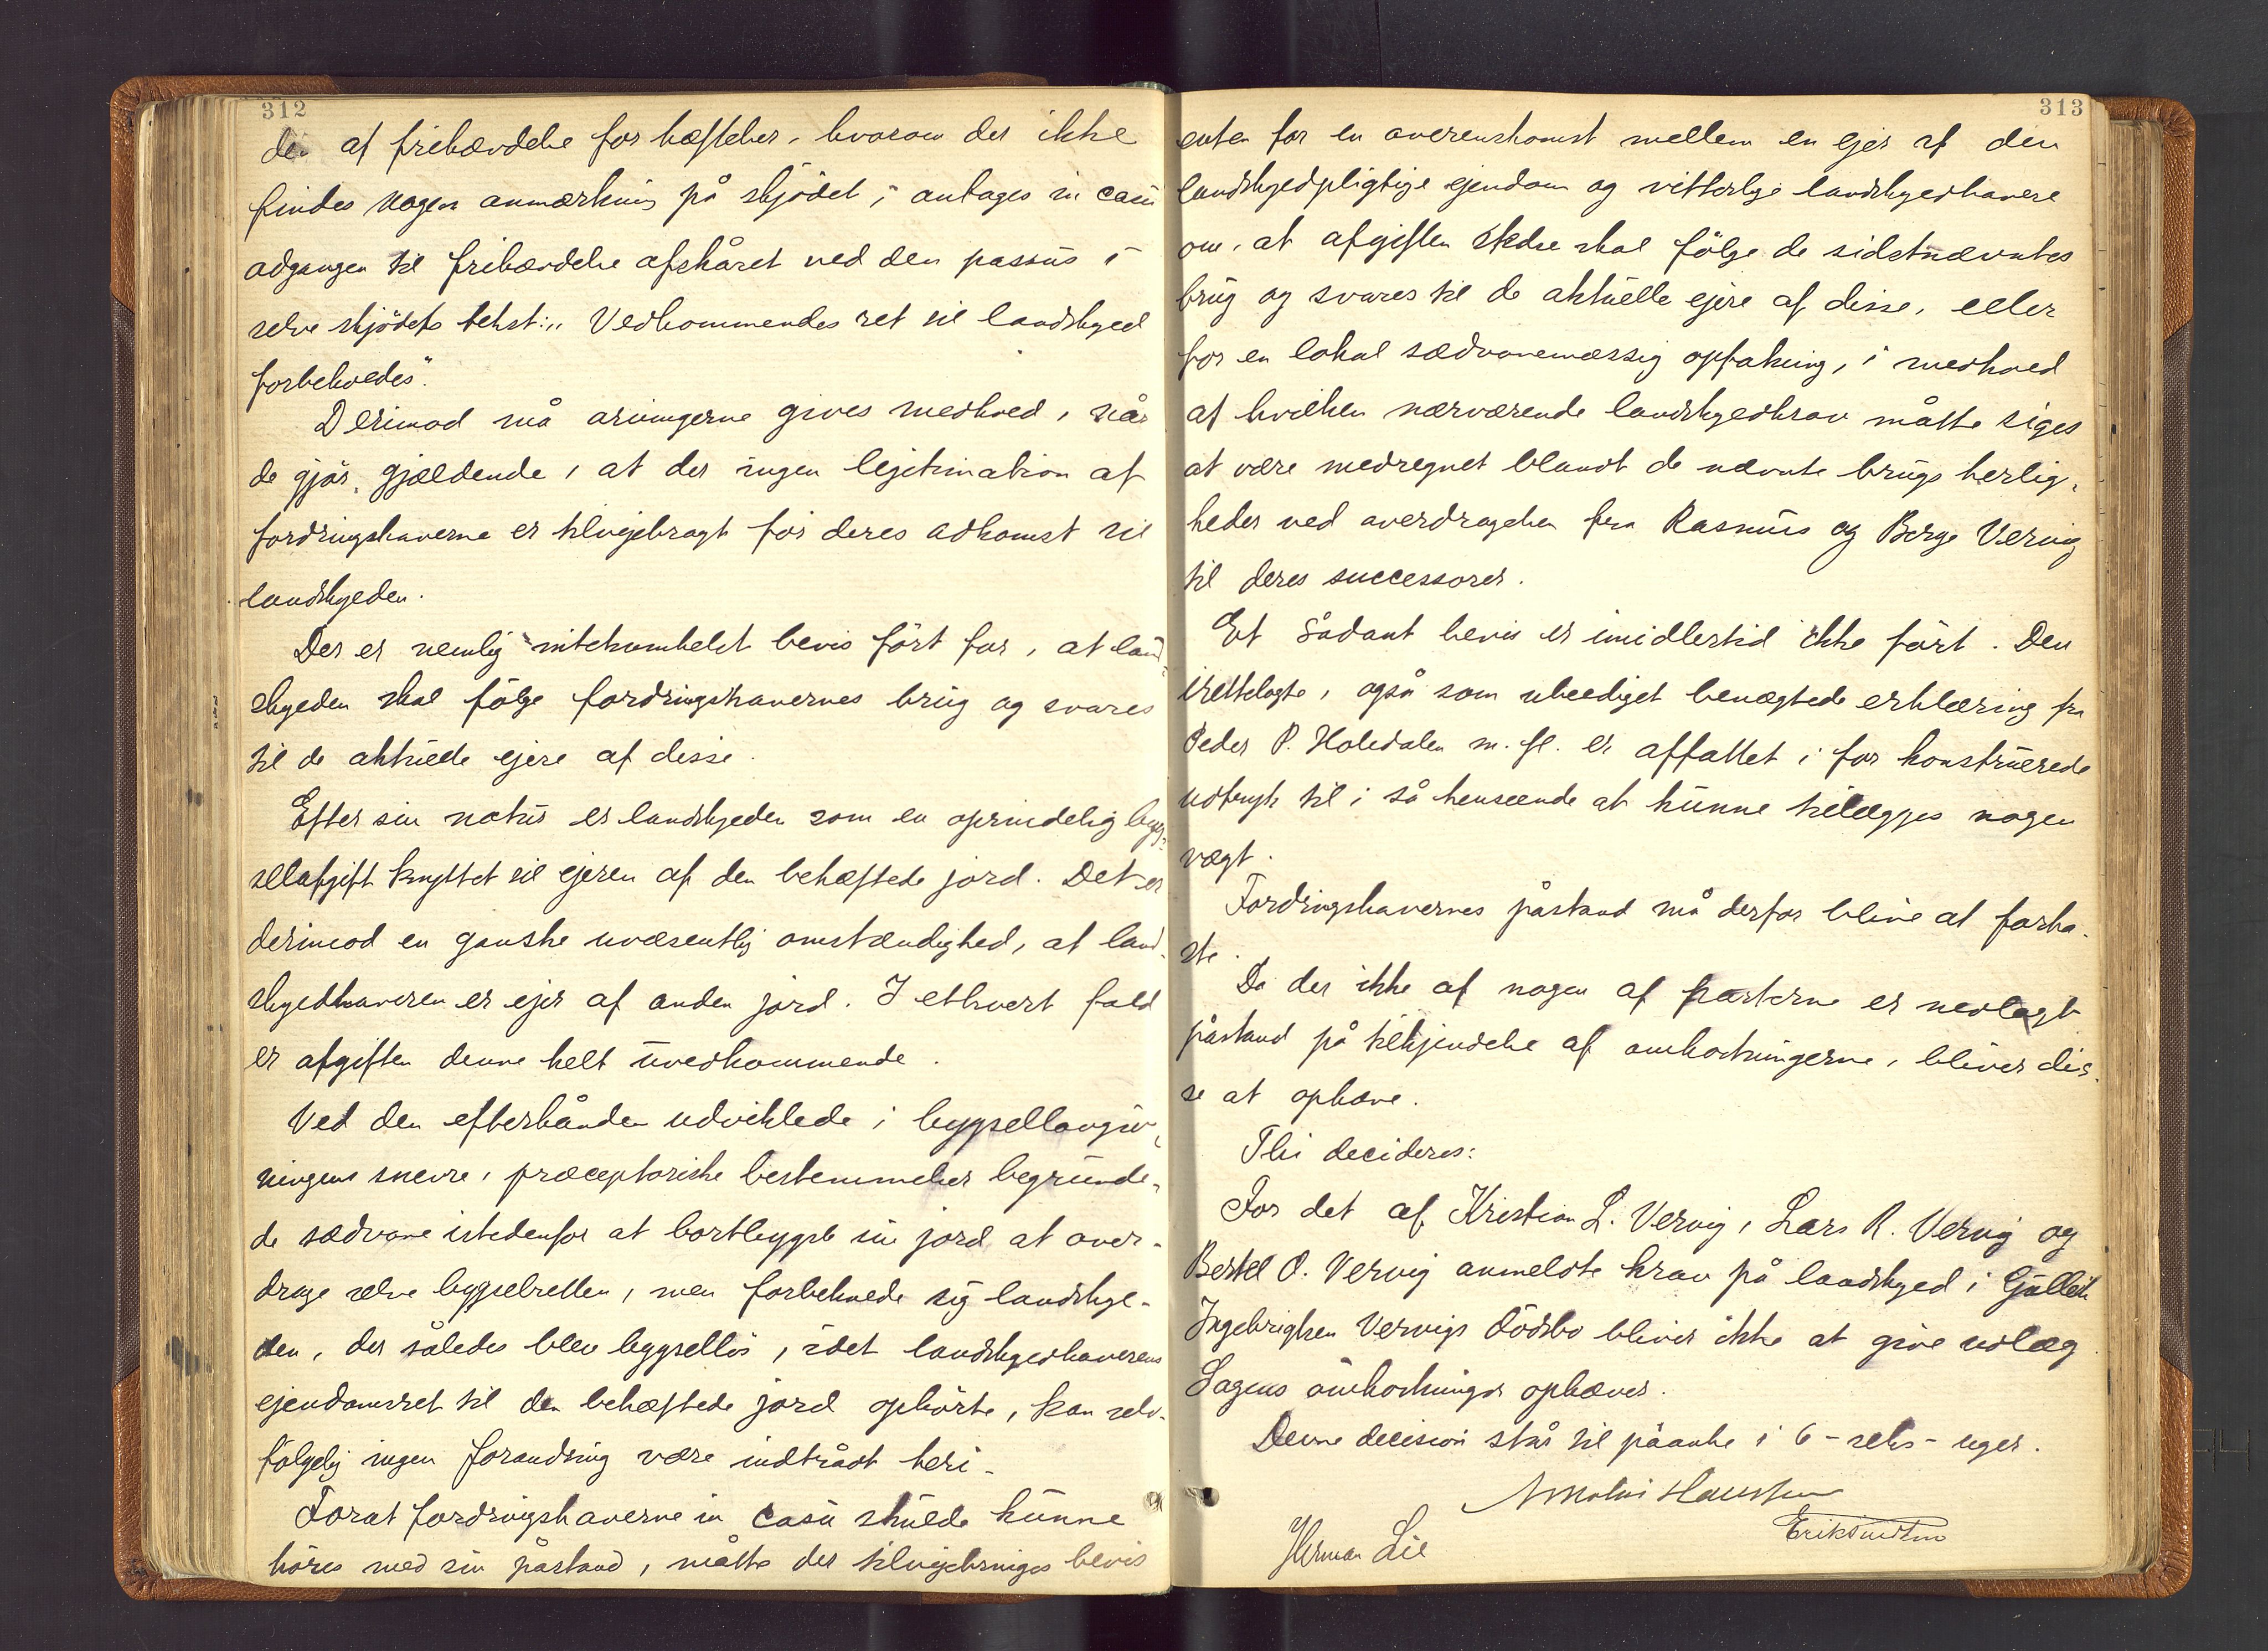 312
den af frihændelse for hæftelser, hvorom der ikke
findes nogen anmærkning på skjödet, antages in casu
adgangen til frihændelse afskåret ved den passus i
selve skjödets tekst: „Vedkommendes ret til landskyld
forbeholdes".
Derimod må arvingerne gives medhold, når
de gjör gjældende, at der ingen legitimation af
fordringshaverne er tilvejebragt for deres adkomst til
landskylden.
Der er nemlig intetsomhelst bevis fört for, at land-
skylden skal fölge fordringshavernes brug og svares
til de aktuelle ejere af disse.
Efter sin natur er landskylden som en oprindelig byg-
selafgift knyttet til ejeren af den behæftede jord. Det er
derimod en ganske uvæsentlig omstændighed, at land-
skyldhaveren er ejer af anden jord. I ethvert fald
er afgiften denne helt uvedkommende.
Ved den efterhånden udviklede i bygsellovgiv-
ningens snevre, præceptoriske bestemmelser begrunde-
de sædvane istedenfor at bortbygsle sin jord at over-
drage selve bygselretten, men forbeholde sig landskyl-
den, der således blev bygsellös, idet landskyldhaverens
ejendomsret til den behæftede jord ophörte, kan selv-
fölgelig ingen forandring være indtrådt heri.
Forat fordringshaverne in casu skulde kunne
höres med sin påstand, måtte der tilvejebringes bevis
313
enten for en overenskomst mellem en ejer af den
landskyldpligtige ejendom og vitterlige landskyldhavere
om, at afgiften skal fölge de sidstnævntes
brug og svares til de aktuelle ejere af disse, eller
for en lokal sædvanemæssig opfatning, i medhold
af hvilken nærværende landskyldkrav måtte siges
at være medregnet blandt de nævnte brugs herlig-
heder ved overdragelsen fra Rasmus og Berge Vervig
til deres successorer.
Et sådant bevis er imidlertid ikke fört. Den
irettelagte, også som ubeediget benægtede erklæring fra
Peder P. Holedalen m. fl. er affattet i for konstruerede
udtryk til i så henseende at kunne tillægges nogen
vægt.
Fordringshavernes påstand må derfor blive at forka-
ste.
Da der ikke af nogen af parterne er nedlagt
påstand på tilkjendelse af omkostningerne, bliver dis-
se at ophæve.
Thi decideres:
For det af Kristian L. Vervig, Lars R. Vervig og
Bertel O. Vervig anmeldte krav på landskyld i
Ingebrigtsen Vervigs dödsbo bliver ikke at give udlæg.
Sagens omkostninger ophæves.
Denne decision står til påanke i 6 - seks - uger.
Herman Lie